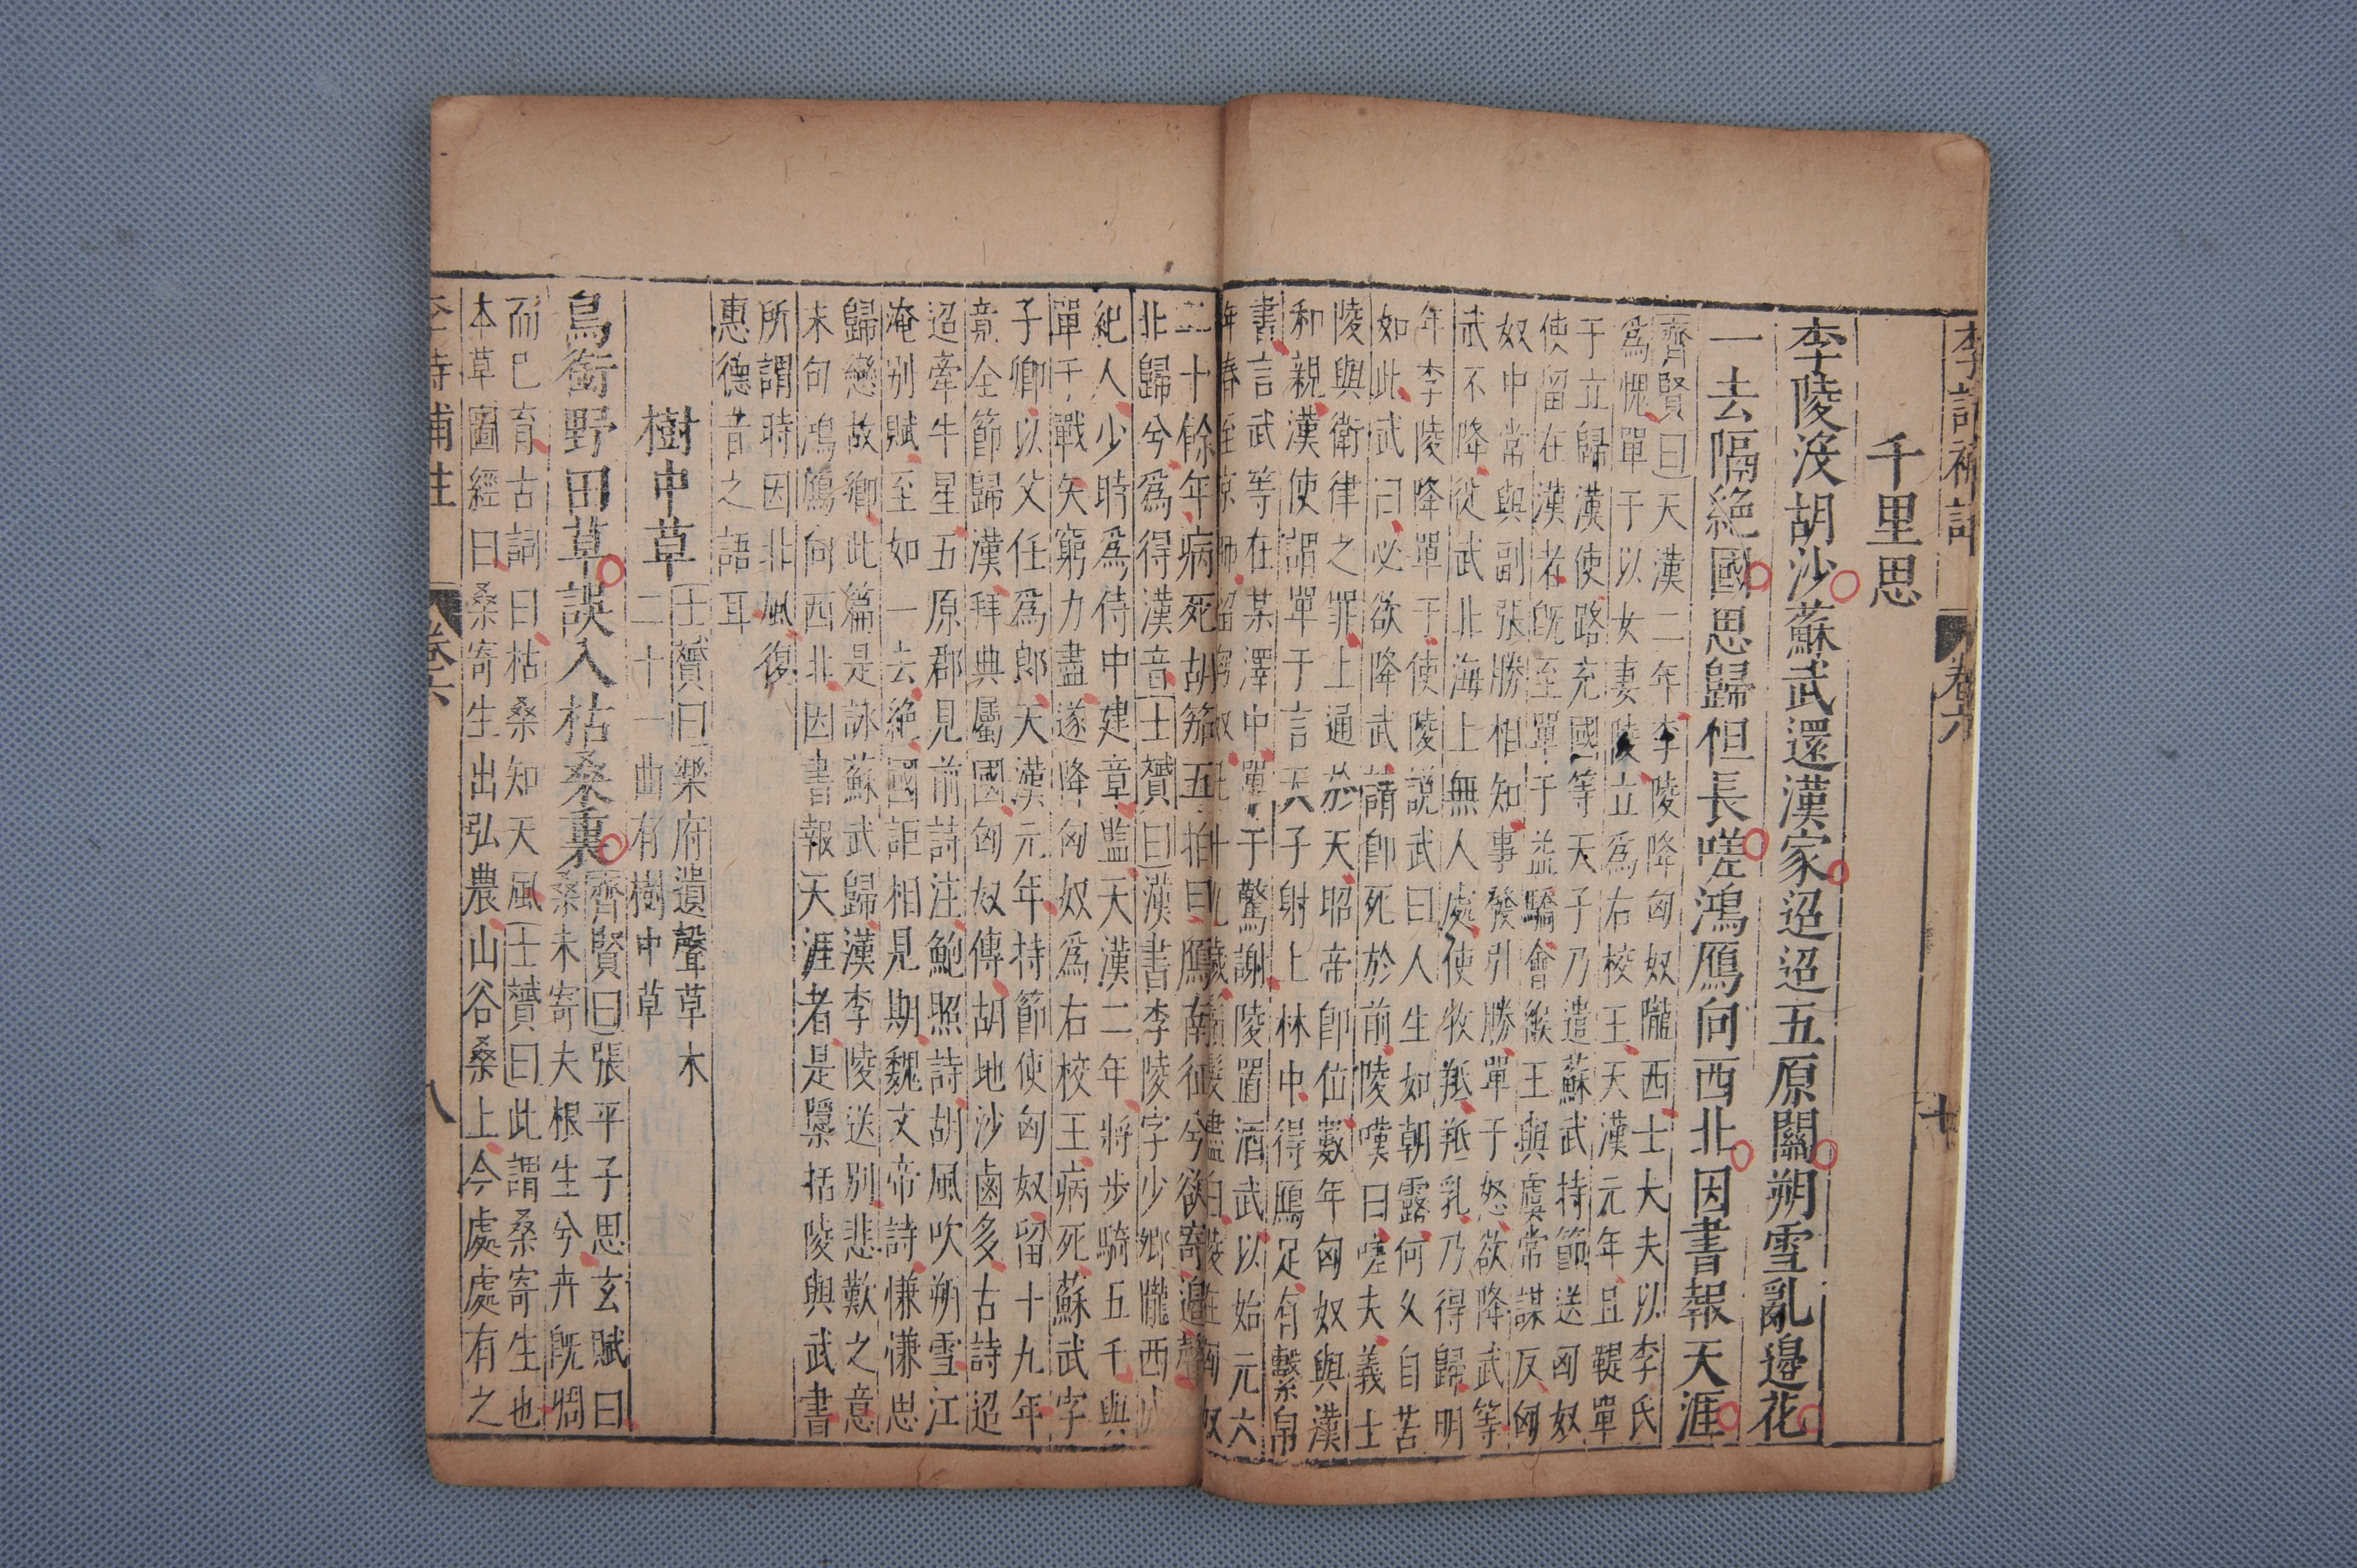 李詩補註 卷六 十
千里思
李陵沒胡沙蘇武還漢家迢迢五原關朔雪亂邊花
一去隔絕國思歸但長嗟鴻鴈向西北因書報天涯
齊賢曰天漢二年李陵降匈奴隴西士大夫以李氏
爲愧單于以女妻陵立爲右校王天漢元年且鞮單
于立歸漢使路充國等天子乃遣蘇武持節送匈奴
使留在漢者旣至單于益驕會緱王與虞常謀反匈
奴中常與副張勝相知事發引勝單于怒欲降武等
武不降徙武北海上無人處使牧羝羝乳乃得歸明
年李陵降單于使陵說武曰人生如朝露何久自苦
如此武曰必欲降武請卽死於前陵嘆曰嗟夫義士
陵與衛律之罪上通於天昭帝卽位數年匈奴與漢
和親漢使謂單于言天子射上林中得鴈足有繫帛
書言武等在某澤中單于驚謝陵置酒武以始元六
年春至京師留匈奴 十九歲鬚髮盡白陵在匈奴
二十餘年病死胡笳五拍曰鴈南征兮欲寄邊聲
北歸兮爲得漢音士贇曰漢書李陵字少卿隴西成
紀人少時爲侍中建章監天漢二年將步騎五千與
單于戰矢窮力盡遂降匈奴爲右校王病死蘇武字
子卿以父任爲郎天漢元年持節使匈奴留十九年
竟全節歸漢拜典屬國匈奴傳胡地沙鹵多古詩迢
迢牽牛星五原郡見前詩注鮑照詩胡風吹朔雪江
淹別賦至如一去絕國詎相見期魏文帝詩慊慊思
歸戀故鄉此篇是詠蘇武歸漢李陵送別悲歎之意
末句鴻鴈向西北因書報天涯者是櫽括陵與武書
所謂時因北風復
惠德音之語耳
樹中草 士贇曰樂府遺聲草木
二十一曲有樹中草
鳥銜野田草誤入枯桑裏 齊賢曰張平子思玄賦曰
桑末寄夫根生兮卉旣凋
而已育古詞曰枯桑知天風士贇曰此謂桑寄生也
本草圖經曰桑寄生出弘農山谷桑上今處處有之
李詩補註 卷六 八